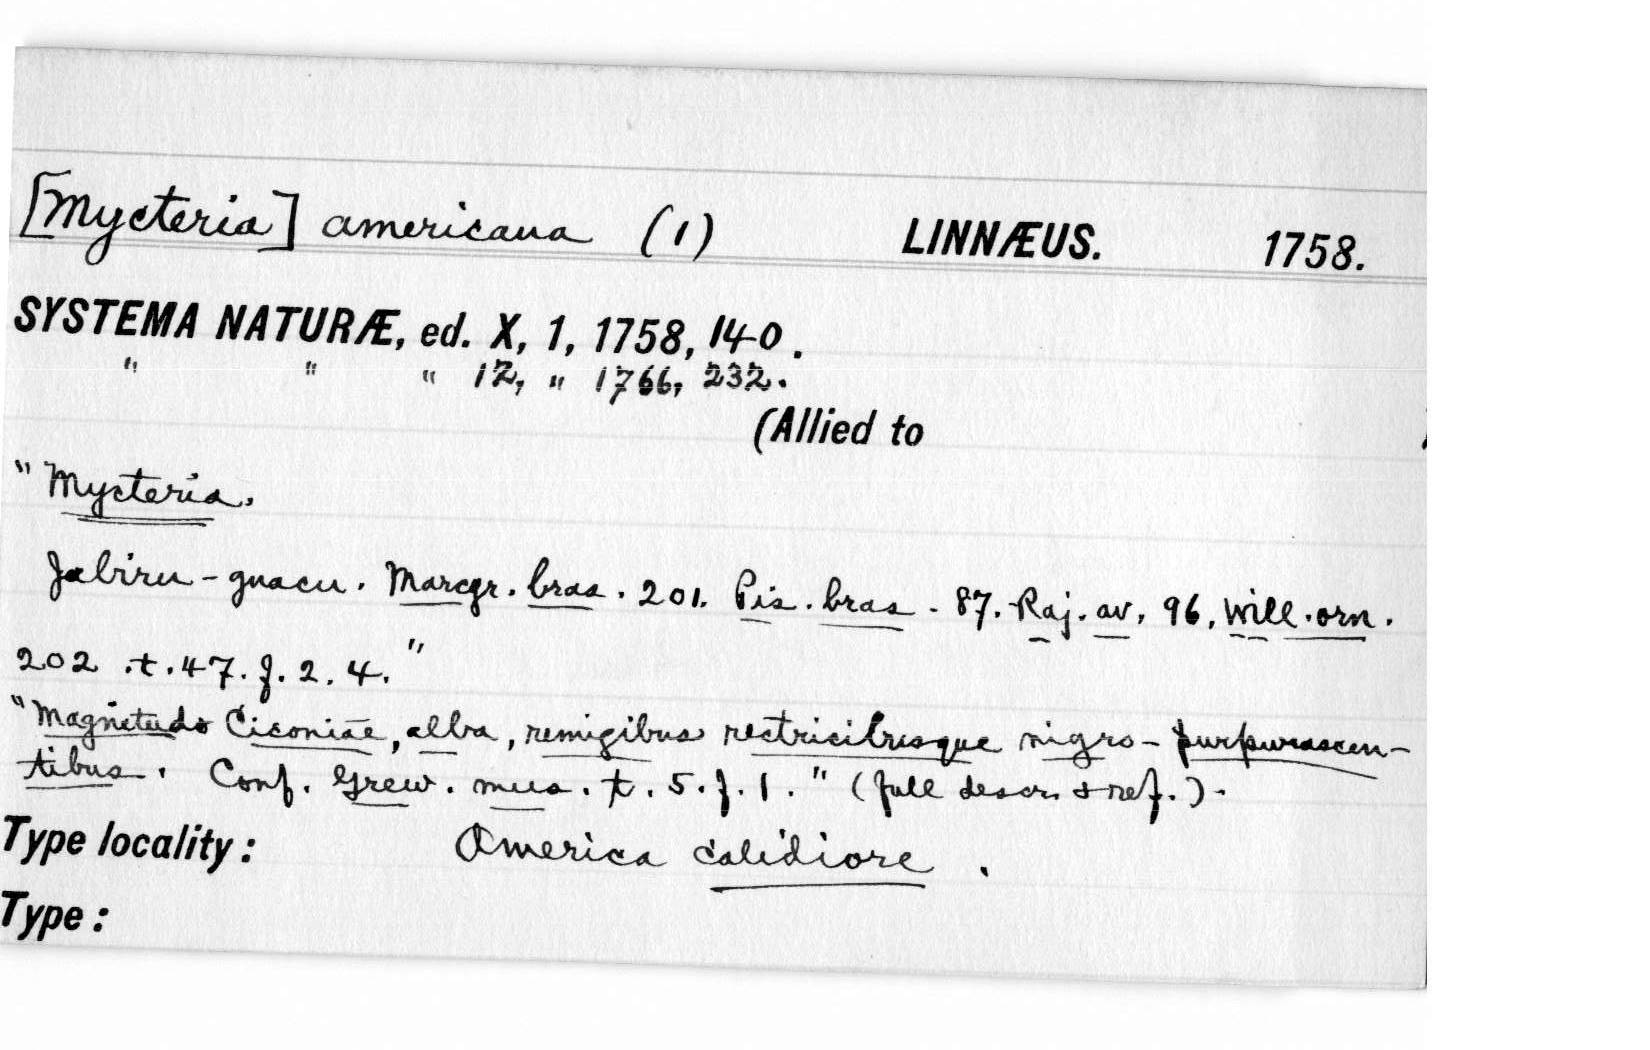 [Mycteria] americana (1) LINNÆUS. 1758.
SYSTEMA NATURÆ, ed. X, 1, 1758, 140.
" " " 12, " 1766, 232.
(Allied to
"Mycteria.
Jabiru-guacu. Marcgr. bras. 201. Pis. bras. 87. Raj. av. 96, Will. orn.
202 .t. 47. f. 2. 4."
"Magnitudo Ciconiae, alba, remigibus rectricibusque nigro-purpurascen-
tibus. Conf. Grew. mus. t. 5. f. 1." (full descr. & ref.).
Type locality: America calidiore.
Type: